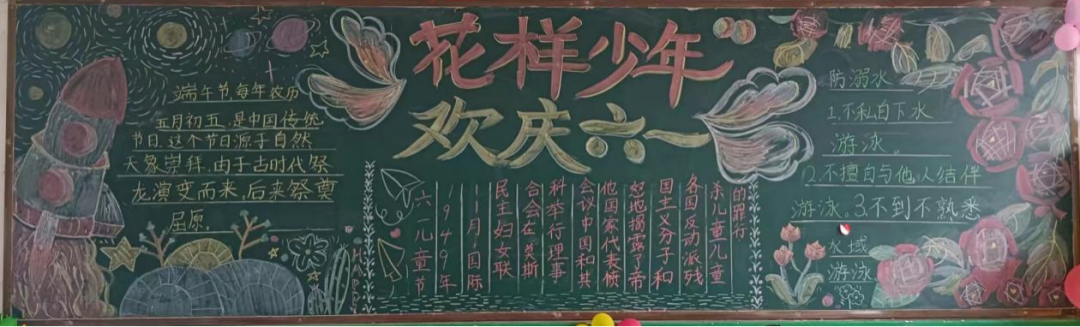 花样少年
欢庆六一
端午节,每年农历
五月初五,是中国传统
节日.这个节日源于自然
天象崇拜,由于古时代祭
龙演变而来,后来祭奠
屈原.
六一儿童节
1949年
11月国际
民主妇女联
合会在莫斯
科举行理事
会议中国和其
他国家代表愤
怒地揭露了帝
国主义分子和
各国反动派残
杀儿童儿童
的罪行
防溺水
1.不私自下水
游泳。
2.不擅自与他人结伴
游泳。3.不到不熟悉
水域
游泳